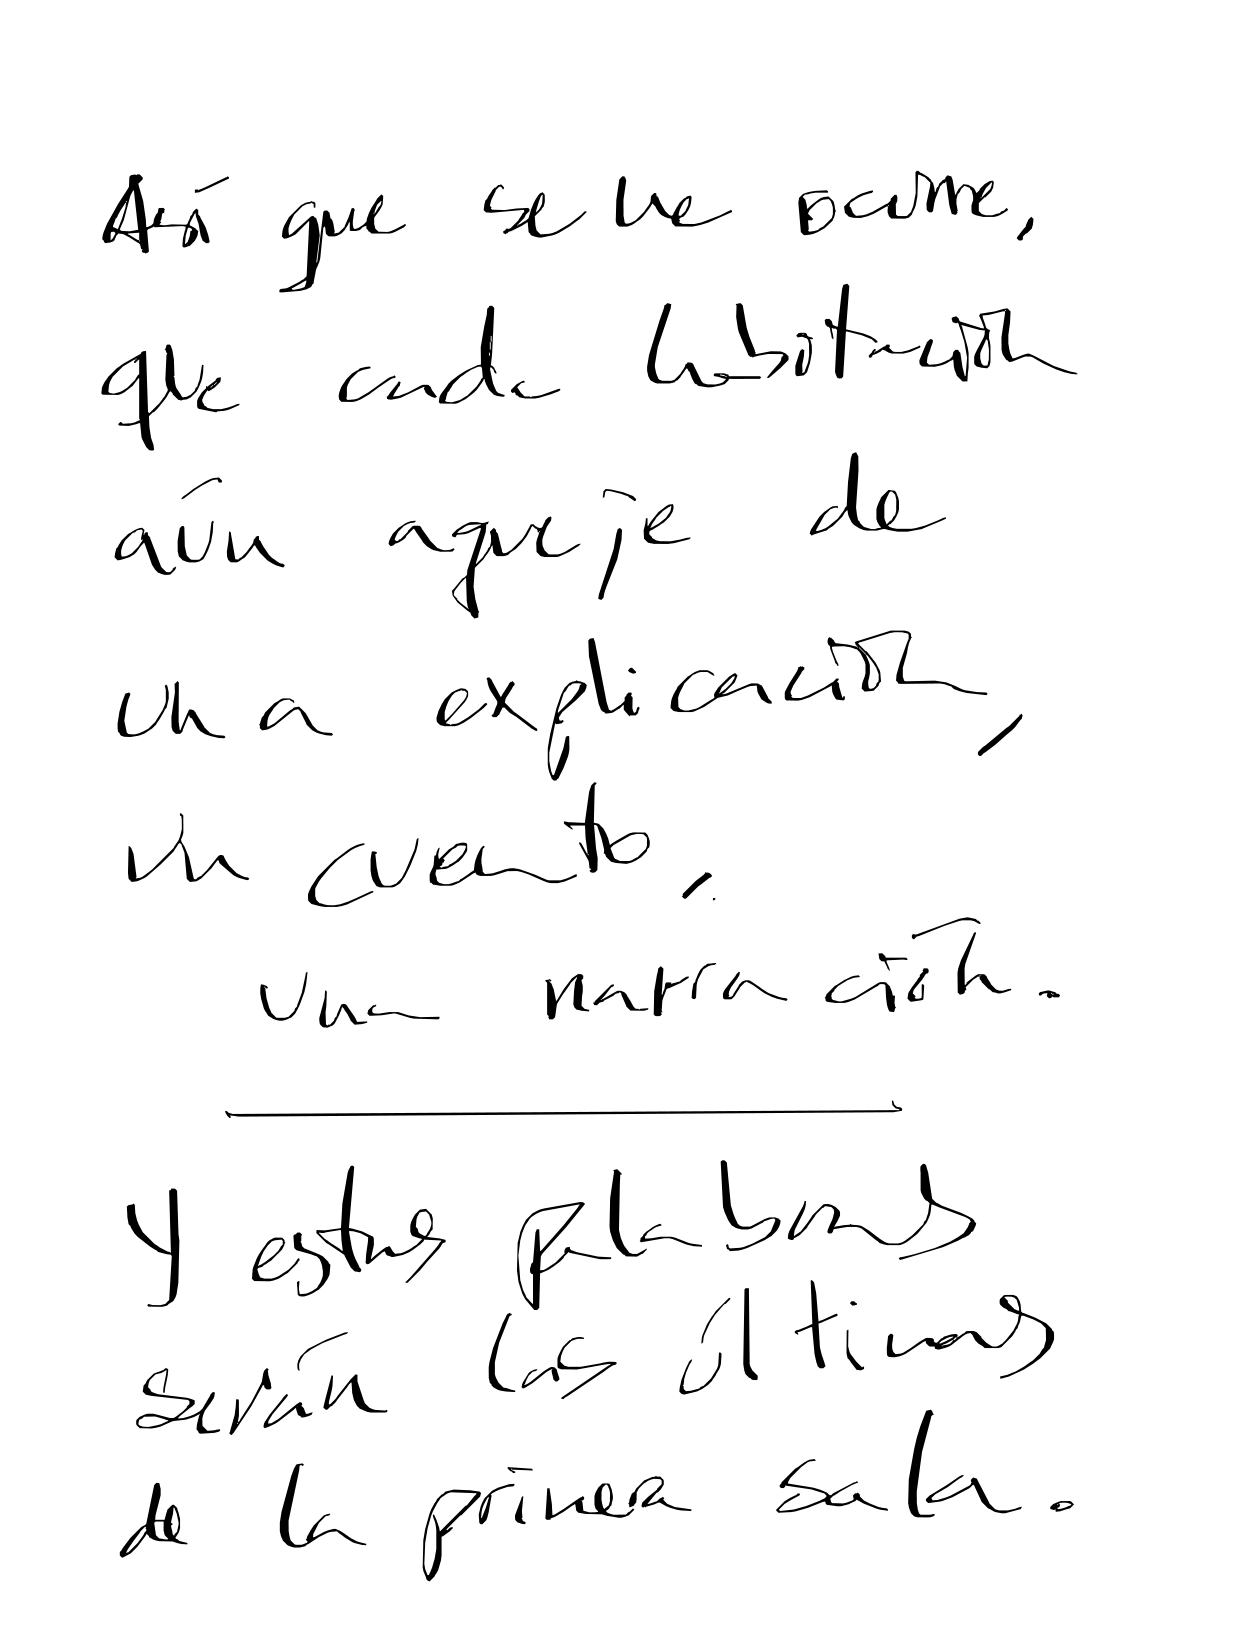 Así que se me ocurre,
que cada habitación
aún aqueje de
una explicación,
un cuento,
una narración.
Y estas palabras
serán las últimas
de la primera sala.